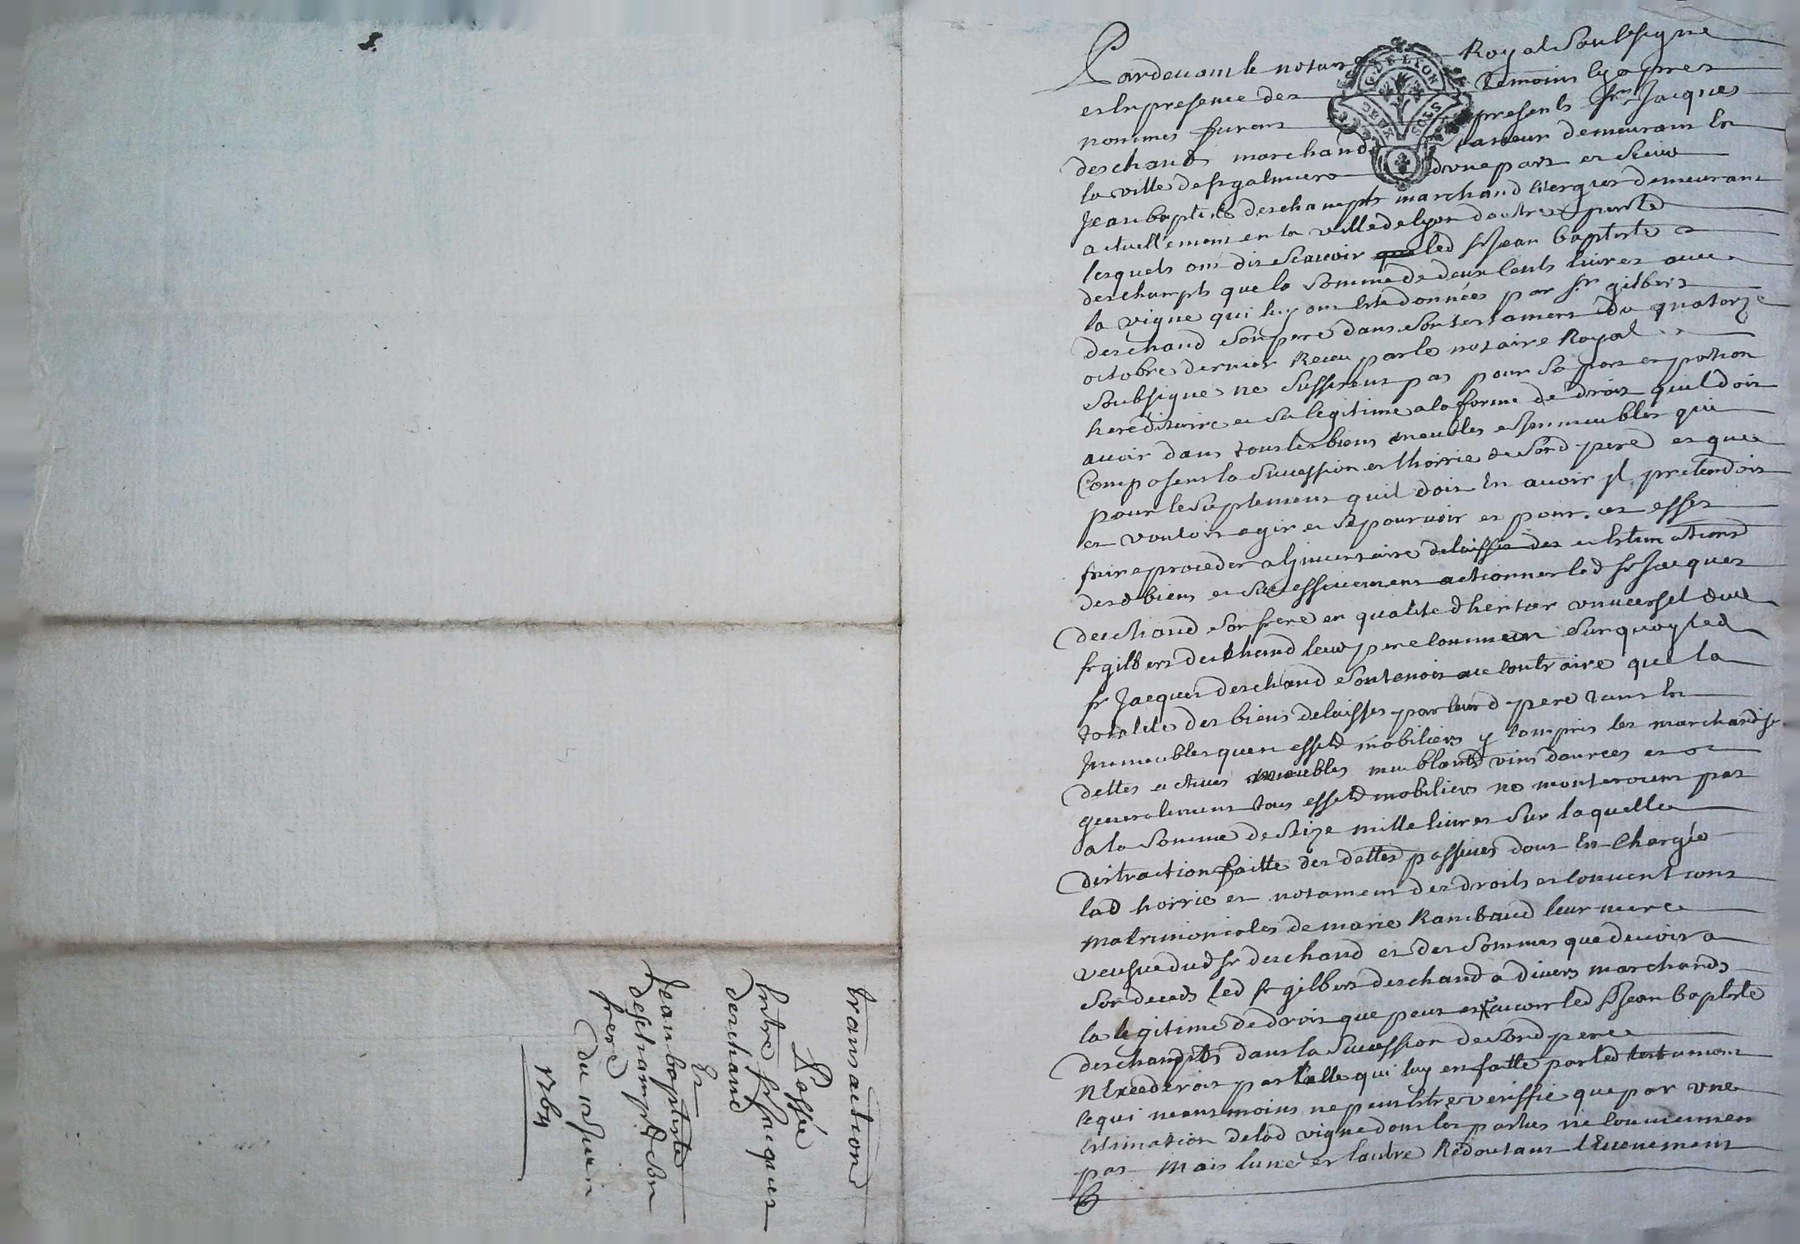 Pardevant le notaire Royal Soubsigne
et En presence des temoins Cy apres
nommes furent presents sr Jacques
deschand marchand taneur demeurant En
la ville de st galmier d'une part et Sieur
Jean baptiste deschampts marchand Cierger demeurant
actuellement en la ville de lyon d'autre parte
lesquels ont dit Scavoir led sr Jean baptiste
deschampts que la Somme de deux Cents livres avec
la vigne qui luy ont Esté données par sr gilbert
deschand Son pere dans Son testament du quatorze
octobre dernier Receu par le notaire Royal
Soubsigne ne Suffisent pas pour Sa part et portion
hereditaire et Sa legitime a la forme de droit quil doit
avoir dans tous les biens meubles et Immeubles qui
Composent la Succession et lhoirrie de Sond pere et que
pour le Suplement quil doit En avoir Il pretendoit
et vouloit agir et Se pourvoir et pour cet effet
faire proceder a linventaire delaissé des estimations
desd biens et Successivement actionner led sr Jacques
deschand Son frere en qualité dheritier universel dud
sr gilbert deschand leur pere Commun Surquoy led
sr Jacques deschand Soutenoit au Contraire que la
totalité des biens delaisses par leurd pere tant En
Immeubles quen effets mobiliers y Compris les marchandises
dettes actives meubles meublants vins danrees et
generalement tous effets mobiliers ne monteroient pas
a la Somme de Seize mille livres Sur laquelle
distraction faitte des dettes passives dont Est Chargée
lad hoirrie et notament des droits et Convent ions
matrimoniales de marie Rambaud leur mere
veufve dud sr deschand et des Sommes que devoit a
Son deceds led sr gilbert deschand a divers marchands
la legitime de droit que peut avoir led sr Jean baptiste
deschampts dans la Succession de Sond pere
nExcederoit pas Celle qui luy en fatte par led testament
Ce qui neantmoins ne peut Estre veriffie que par une
Estimation de lad vigne dont les parties ne Conviennent
pas Mais lune et lautre Redoutant lEvenement
transaction
Passée
Entre sr Jacques
deschand
Et
Jean baptiste
deschampts Son
frere
du 12 Juin
1764